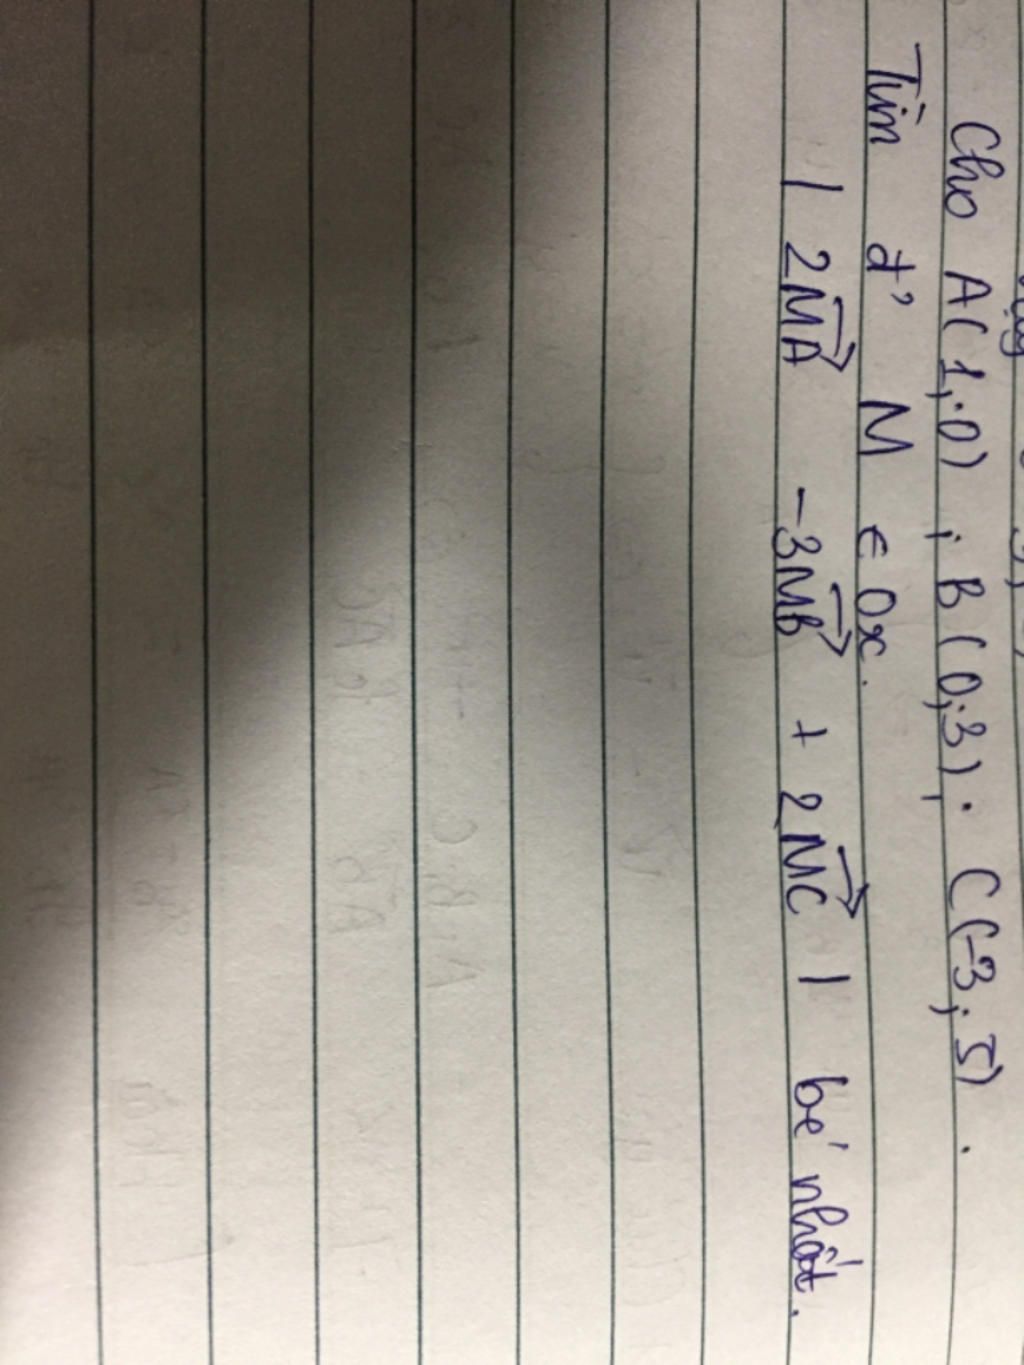 Cho A(1; 0) ; B(0;3), C(-3; 5).
Tìm đ' M ∈ Ox.
| 2MA→ - 3MB→ + 2MC→ | bé nhất.